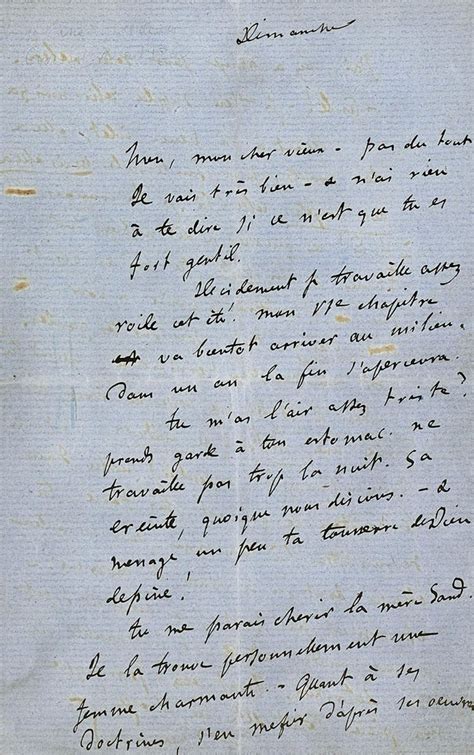 Dimanche
Non, mon cher vieux – pas du tout
Je vais très bien – & n'ai rien
à te dire si ce n'est que tu es
fort gentil.
Décidément je travaille assez
roide cet été. mon VIe chapitre
va bientot arriver au milieu.
Dans un an la fin s'apercevra.
tu m'as l'air assez triste?
prends garde à ton estomac. ne
travaille pas trop la nuit. ça
éreinte, quoique nous disions. – &
menage un peu ta
depine!
tu me parais cherir la mère Sand.
Je la trouve personnellement une
femme charmante. – Quant à ses
doctrines, s'en mefier d'après ses oeuvres